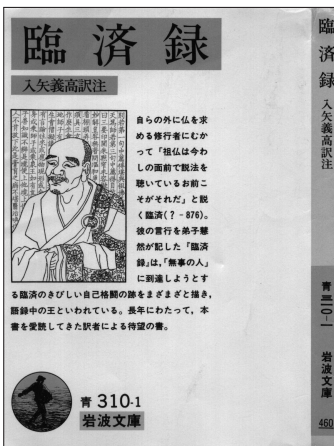 臨済録
入矢義高訳注
自らの外に仏を求
める修行者にむか
って「祖仏は今わ
しの面前で説法を
聴いているお前こ
そがそれだ」と説
く臨済(？-876)。
彼の言行を弟子慧
然が記した「臨済
録」は,「無事の人」
に到達しようとす
る臨済のきびしい自己格闘の跡をまざまざと描き,
語録中の王といわれている。長年にわたって，本
書を愛読してきた訳者による待望の書。
青 310-1
岩波文庫
臨済録
入矢義高訳注
青三一〇-一
岩波文庫
460